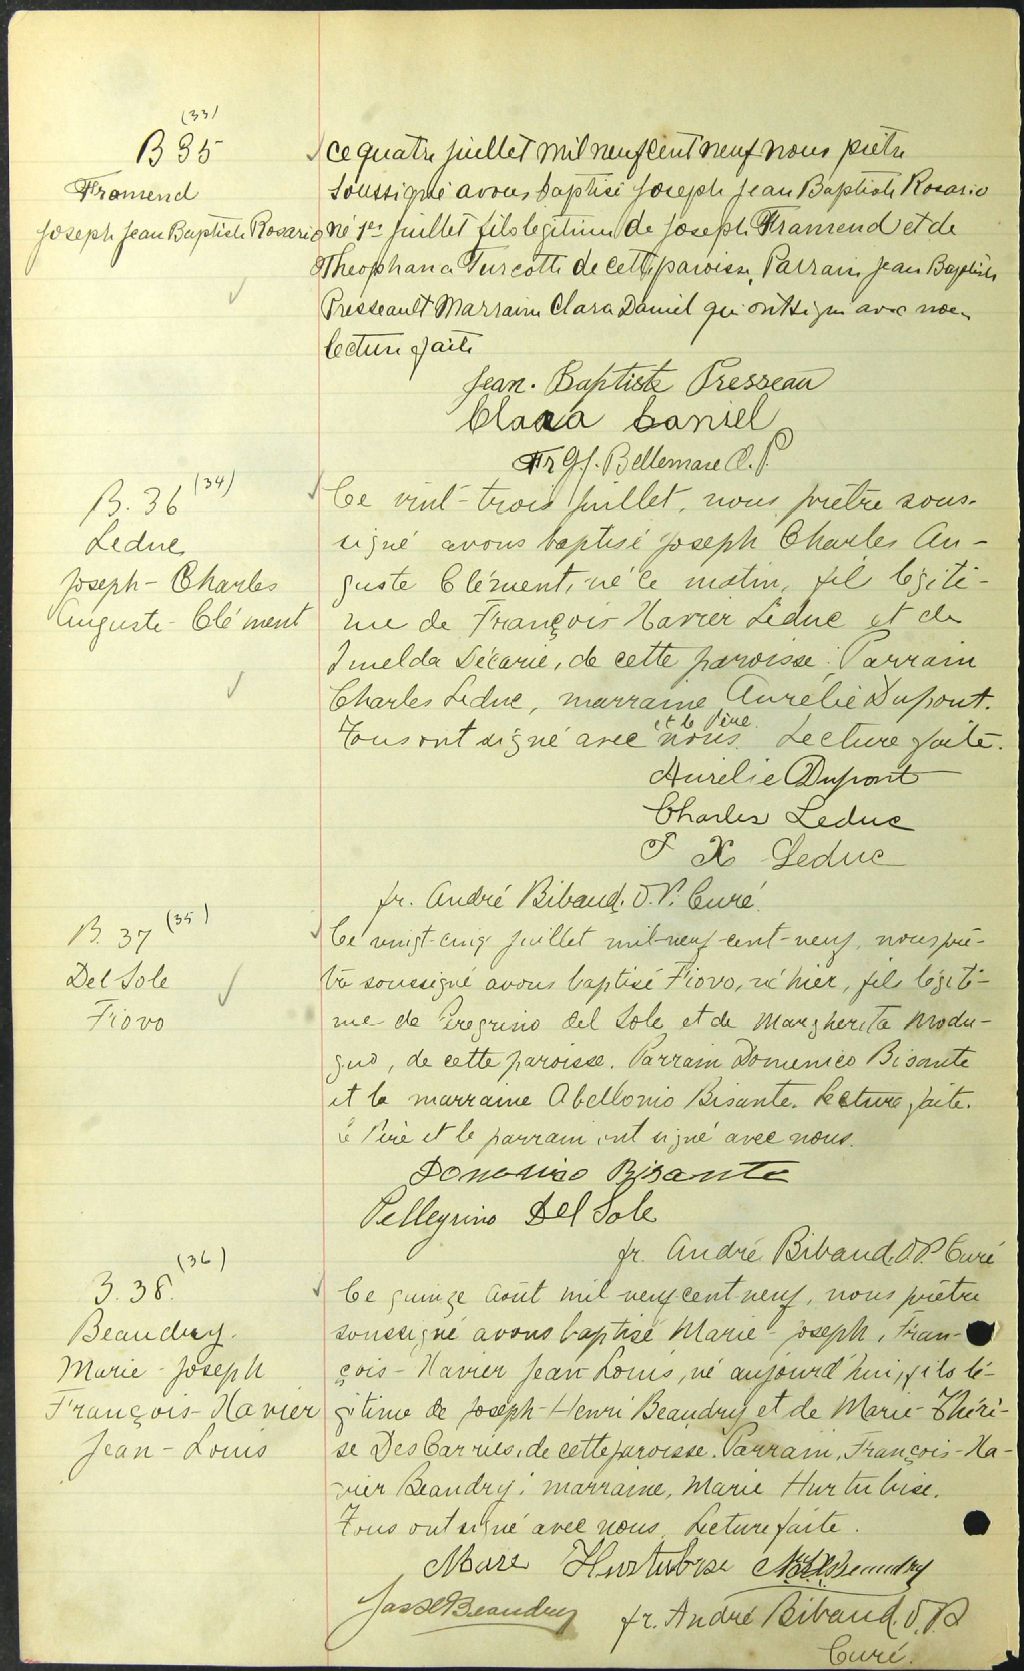 (33)
B 35
Framend
Joseph Jean Baptiste Rosario
Ce quatre juillet mil neuf cent neuf nous prêtre
soussigné avons baptisé Joseph Jean Baptiste Rosario
né 1er juillet fils legitime de Joseph Framend et de
Theophana Turcotte de cette paroisse, Parrain Jean Baptiste
Presseault Marraine Clara Daniel qui ont signé avec nous
lecture faite
Jean. Baptiste Presseau
Clara Daniel
Fr Bellemare O.P.
(34)
B. 36
Leduc
Joseph - Charles
Auguste - Clément
Ce vint-trois juillet, nous prêtre sous-
signé avons baptisé Joseph Charles Au-
guste Clément, né ce matin, fil légiti-
me de François Xavier Leduc et de
Imelda Décarie, de cette paroisse; Parrain
Charles Leduc, marraine Aurélie Dupont.
et le Père
Tous ont signé avec nous. Lecture faite.
Aurélie Dupont
Charles Leduc
F X Leduc
fr. André Bibaud. O.P. Curé.
(35)
B. 37
Del Sole
Fiovo
Ce vingt-cinq juillet mil-neuf-cent-neuf, nous prê-
tre soussigné avons baptisé Fiovo, né hier, fils légiti-
me de Peregrino Del Sole et de Margherita Modu-
gno, de cette paroisse. Parrain Domenico Bisante
et la marraine Abellonio Bisante. Lecture faite.
Le Père et le parrain ont signé avec nous.
Domenico Bisante
Pellegrino Del Sole
fr. André Bibaud. O.P. Curé
(36)
B. 38.
Beaudry.
Marie - Joseph
François - Xavier
Jean - Louis
Ce quinze Août mil neuf cent-neuf, nous prêtre
soussigné avons baptisé Marie - Joseph, Fran-
çois - Xavier Jean Louis, né aujourd'hui, fils lé-
gitime de Joseph-Henri Beaudry et de Marie-Thérè-
se DesCarries, de cette paroisse. Parrain, François-Xa-
vier Beaudry; marraine, Marie Hurtubise.
Tous ont signé avec nous. Lecture faite.
Marie Hurtubise Beaudry
Beaudry fr. André Bibaud. O.P.
Curé.